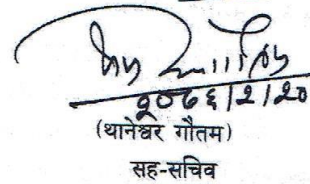 २०७६/२/२०
(थानेश्वर गौतम)
सह-सचिव